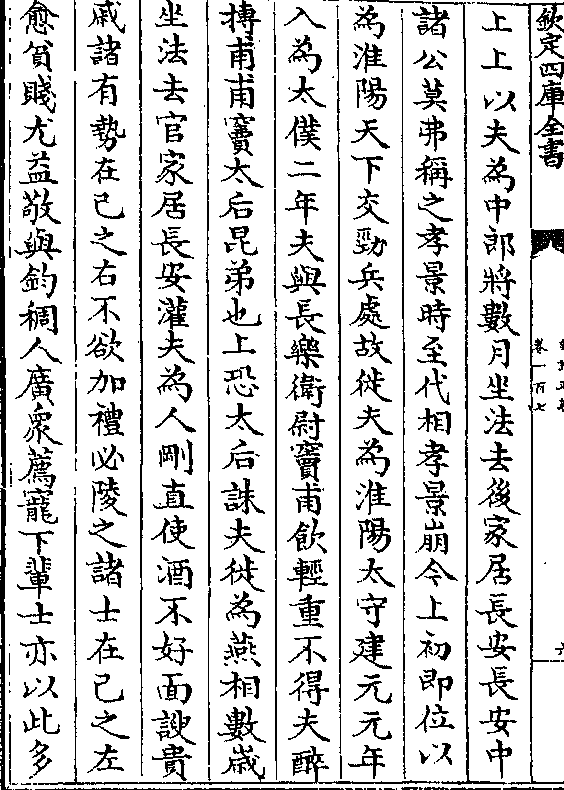 欽定四庫全書
卷一百七
上上以夫為中郎將數月坐法去後家居長安長安中
諸公莫弗稱之孝景時至代相孝景崩今上初即位以
為淮陽天下交勁兵處故徙夫為淮陽太守建元元年
入為太僕二年夫與長樂衛尉竇甫飲輕重不得夫醉
搏甫甫竇太后昆弟也上恐太后誅夫徙為燕相數歲
坐法去官家居長安灌夫為人剛直使酒不好面諛貴
戚諸有勢在己之右不欲加禮必陵之諸士在己之左
愈貧賤尤益敬與鈞稠人廣衆薦寵下輩士亦以此多